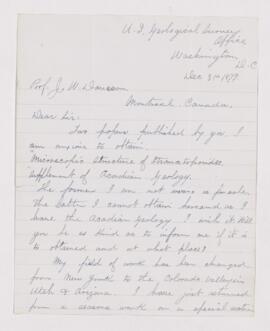 U.S. Geological Survey
Office
Washington
D.C
Dec 31st 1879.
Prof. J. W. Dawson
Montreal. Canada.
Dear Sir:
Two papers published by you, I
am anxious to obtain.
Microscopic structure of Stromatoporidae
Supplement of Acadian Geology.
The former I am not sure is possible
the latter I cannot obtain because as I
have the Acadian Geology I wish it. Will
you be so kind as to inform me if it is
to obtained and at what place?
My field of work has been changed
from New York to the Colorado Valley in
Utah & Arizona. I have just returned
from a seasons work on a special section